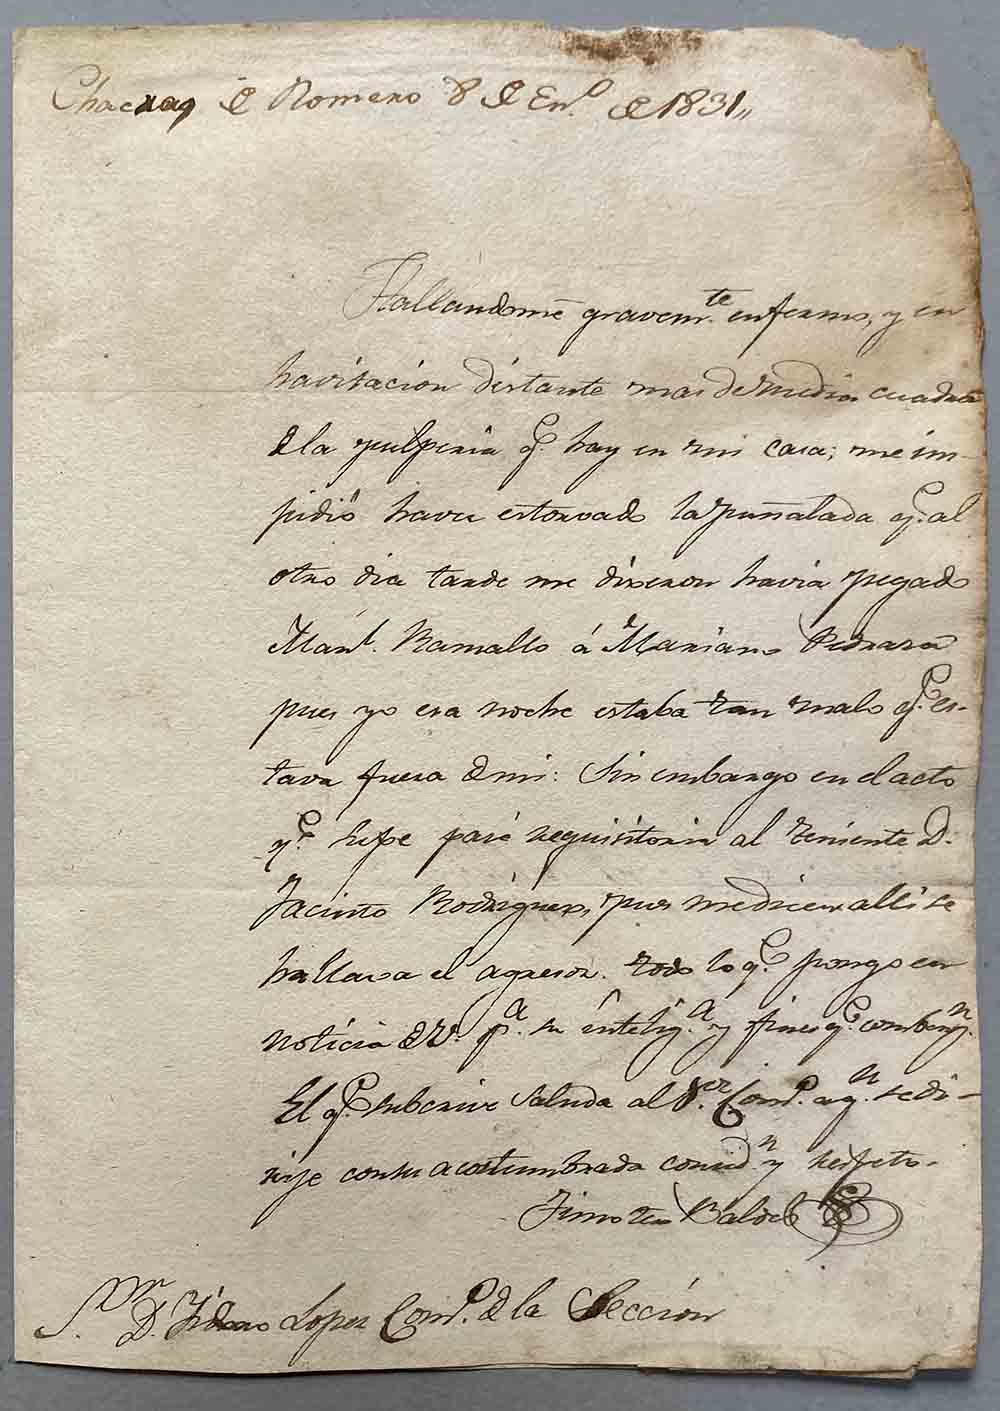 Chacras de Romero 8 de En.º de 1831,,
Hallandome gravem.te enfermo, y en
havitacion distante mas de media cuadra
de la pulperia q.e hay en mi casa; me im-
pidió haver estorvado la puñalada q.e al
otro dia tarde me dixeron havia pegado
Man.l Ramallo á Mariano Pedraza
pues yo esa noche estaba tan malo q.e es-
tava fuera de mi: Sin embargo en el acto
q.e supe pasé requisitoria al teniente D.
Jacinto Rodriguez, pues me dicen alli se
hallava el agresor. todo lo q.e pongo en
noticia de V. p.a su intelig.a y fines q.e comben.n
El q.e subcrive saluda al S.or Com.e a q.n se di-
rije con su acostumbrada consid.n y respeto.
Timoteo Balde
S.or D. Isidoro Lopez Com.e de la Seccion